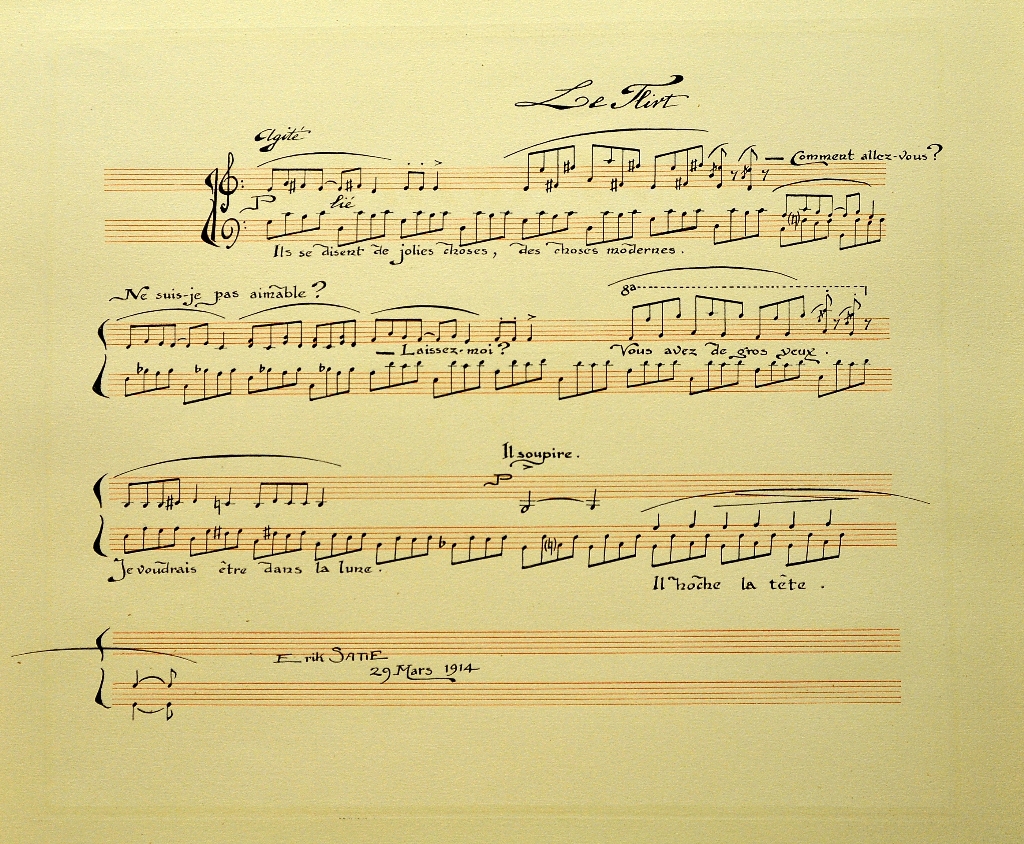 Le Flirt
Agité
— Comment allez-vous?
P
lié
Ils se disent de jolies choses, des choses modernes.
Ne suis-je pas aimable?
8a
— Laissez-moi?
Vous avez de gros yeux.
Il soupire.
P
Je voudrais être dans la lune.
Il hoche la tête.
Erik SATIE
29 Mars 1914